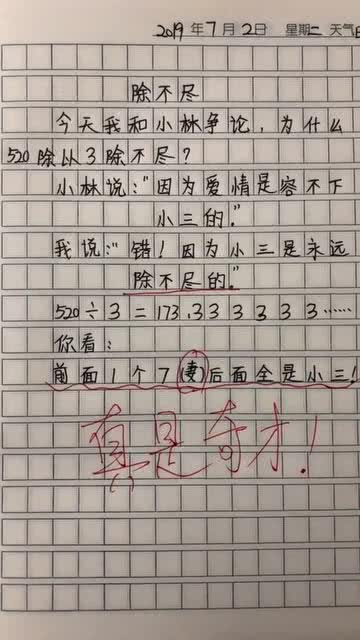 2019 年 7 月 2 日 星期二 天气
除不尽
今天我和小林争论，为什么
520除以3除不尽？
小林说："因为爱情是容不下
小三的."
我说："错！因为小三是永远
除不尽的."
520÷3=173.333333……
你看：
前面1个7(妻)后面全是小三!
真是奇才!